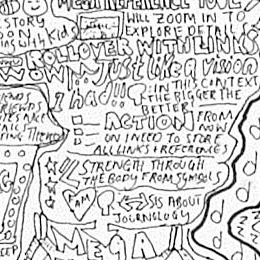 REFERENCE TOOL!
STORY
WILL ZOOM IN TO
EXPLORE DETAIL!
with Kids
ROLLOVER WITH LINKS
WOW! Just like a vision
I had!!
IN THIS CONTEXT
THE BIGGER THE
BETTER!
ACTION FROM
NOW
ON I NEED TO STORE
ALL LINKS & REFERENCES
STRENGTH THROUGH
THE BODY FROM SYMBOLS
I AM
IS ABOUT
JOURNOLOGY
MEGA